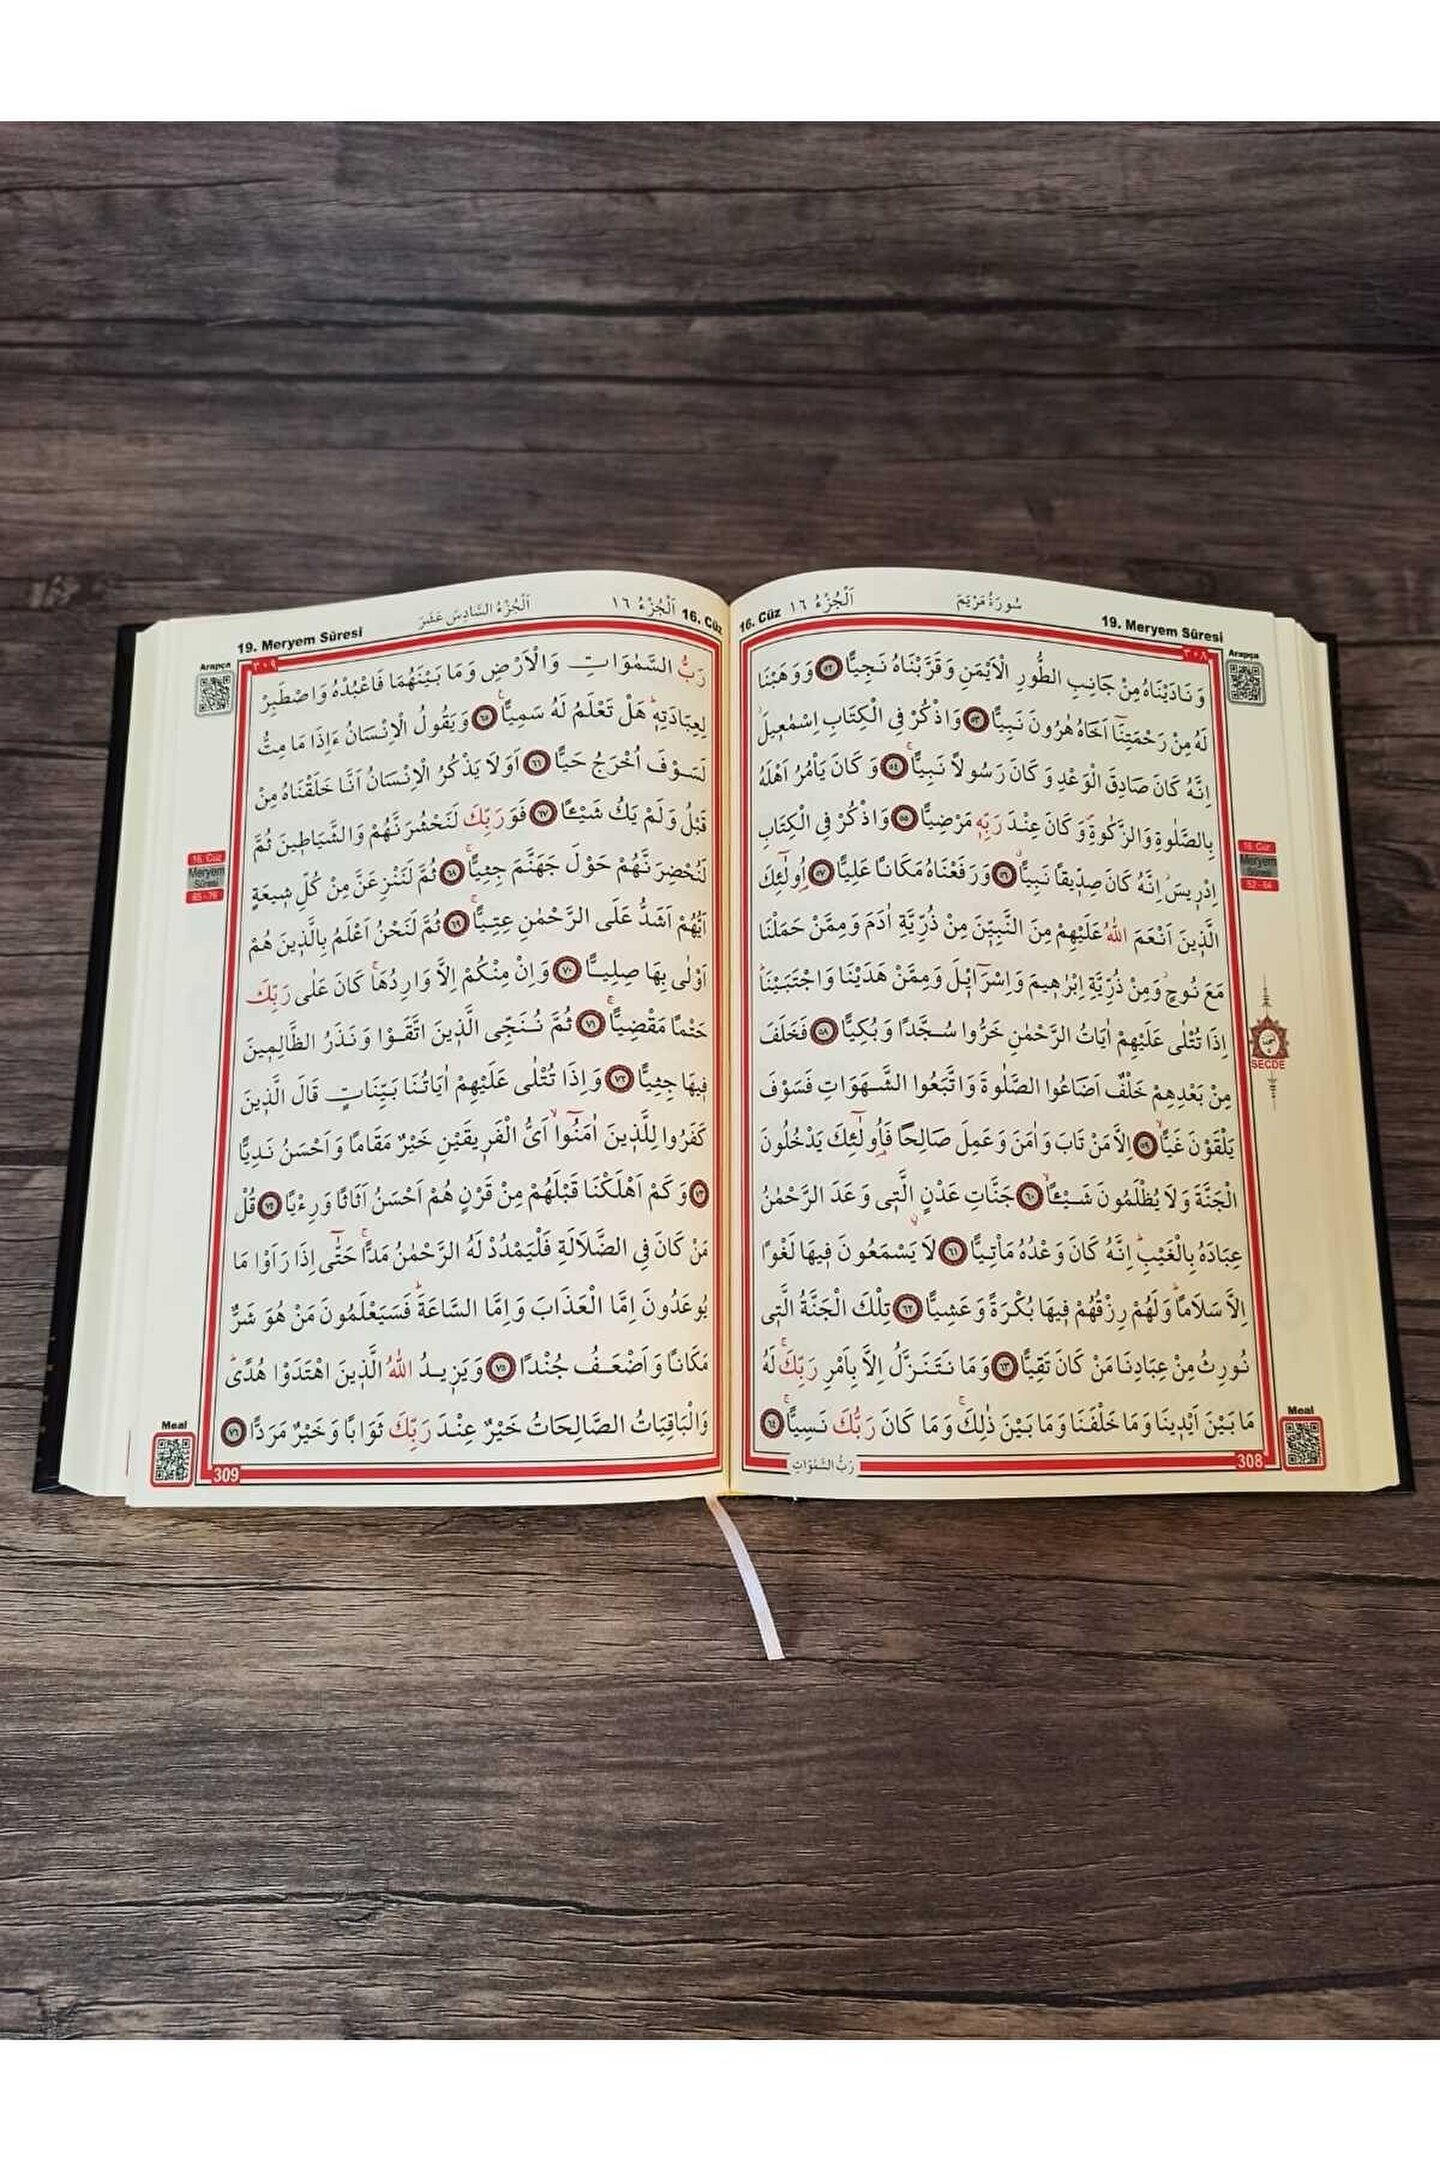 سُورَةُ مَرْيَمَ
19. Meryem Sûresi
اَلْجُزْءُ ١٦
16. Cüz
٣٠٨
Arapça
وَنَادَيْنَاهُ مِنْ جَانِبِ الطُّورِ الْاَيْمَنِ وَقَرَّبْنَاهُ نَجِيًّا ﴿٥٢﴾ وَوَهَبْنَا
لَهُ مِنْ رَحْمَتِنَٓا اَخَاهُ هٰرُونَ نَبِيًّا ﴿٥٣﴾ وَاذْكُرْ فِى الْكِتَابِ اِسْمٰعٖيلَۘ
اِنَّهُ كَانَ صَادِقَ الْوَعْدِ وَكَانَ رَسُولًا نَبِيًّاۚ ﴿٥٤﴾ وَكَانَ يَاْمُرُ اَهْلَهُ
بِالصَّلٰوةِ وَالزَّكٰوةِۖ وَكَانَ عِنْدَ رَبِّهٖ مَرْضِيًّا ﴿٥٥﴾ وَاذْكُرْ فِى الْكِتَابِ
اِدْرٖيسَۘ اِنَّهُ كَانَ صِدّٖيقًا نَبِيًّاۙ ﴿٥٦﴾ وَرَفَعْنَاهُ مَكَانًا عَلِيًّا ﴿٥٧﴾ اُولٰٓئِكَ
الَّذٖينَ اَنْعَمَ اللّٰهُ عَلَيْهِمْ مِنَ النَّبِيّٖنَ مِنْ ذُرِّيَّةِ اٰدَمَ وَمِمَّنْ حَمَلْنَا
مَعَ نُوحٍۘ وَمِنْ ذُرِّيَّةِ اِبْرٰهٖيمَ وَاِسْرَٓائٖلَ وَمِمَّنْ هَدَيْنَا وَاجْتَبَيْنَاۜ
اِذَا تُتْلٰى عَلَيْهِمْ اٰيَاتُ الرَّحْمٰنِ خَرُّوا سُجَّدًا وَبُكِيًّا ﴿٥٨﴾ فَخَلَفَ
مِنْ بَعْدِهِمْ خَلْفٌ اَضَاعُوا الصَّلٰوةَ وَاتَّبَعُوا الشَّهَوَاتِ فَسَوْفَ
يَلْقَوْنَ غَيًّاۙ ﴿٥٩﴾ اِلَّا مَنْ تَابَ وَاٰمَنَ وَعَمِلَ صَالِحًا فَاُو۬لٰٓئِكَ يَدْخُلُونَ
الْجَنَّةَ وَلَا يُظْلَمُونَ شَيْـًٔاۙ ﴿٦٠﴾ جَنَّاتِ عَدْنٍ الَّتٖى وَعَدَ الرَّحْمٰنُ
عِبَادَهُ بِالْغَيْبِۜ اِنَّهُ كَانَ وَعْدُهُ مَاْتِيًّا ﴿٦١﴾ لَا يَسْمَعُونَ فٖيهَا لَغْوًا
اِلَّا سَلَامًاۜ وَلَهُمْ رِزْقُهُمْ فٖيهَا بُكْرَةً وَعَشِيًّا ﴿٦٢﴾ تِلْكَ الْجَنَّةُ الَّتٖى
نُورِثُ مِنْ عِبَادِنَا مَنْ كَانَ تَقِيًّا ﴿٦٣﴾ وَمَا نَتَنَزَّلُ اِلَّا بِاَمْرِ رَبِّكَۚ لَهُ
مَا بَيْنَ اَيْدٖينَا وَمَا خَلْفَنَا وَمَا بَيْنَ ذٰلِكَۚ وَمَا كَانَ رَبُّكَ نَسِيًّاۚ ﴿٦٤﴾
16. Cüz
Meryem
Sûresi
52-64
SECDE
Meal
308
رَبُّ السَّمٰوَاتِ
16. Cüz
اَلْجُزْءُ ١٦
اَلْجُزْءُ السَّادِسَ عَشَرَ
19. Meryem Sûresi
٣٠٩
Arapça
رَبُّ السَّمٰوَاتِ وَالْاَرْضِ وَمَا بَيْنَهُمَا فَاعْبُدْهُ وَاصْطَبِرْ
لِعِبَادَتِهٖۜ هَلْ تَعْلَمُ لَهُ سَمِيًّاۚ ﴿٦٥﴾ وَيَقُولُ الْاِنْسَانُ ءَاِذَا مَا مِتُّ
لَسَوْفَ اُخْرَجُ حَيًّا ﴿٦٦﴾ اَوَلَا يَذْكُرُ الْاِنْسَانُ اَنَّا خَلَقْنَاهُ مِنْ
قَبْلُ وَلَمْ يَكُ شَيْـًٔا ﴿٦٧﴾ فَوَرَبِّكَ لَنَحْشُرَنَّهُمْ وَالشَّيَاطٖينَ ثُمَّ
لَنُحْضِرَنَّهُمْ حَوْلَ جَهَنَّمَ جِثِيًّاۚ ﴿٦٨﴾ ثُمَّ لَنَنْزِعَنَّ مِنْ كُلِّ شٖيعَةٍ
اَيُّهُمْ اَشَدُّ عَلَى الرَّحْمٰنِ عِتِيًّاۚ ﴿٦٩﴾ ثُمَّ لَنَحْنُ اَعْلَمُ بِالَّذٖينَ هُمْ
اَوْلٰى بِهَا صِلِيًّا ﴿٧٠﴾ وَاِنْ مِنْكُمْ اِلَّا وَارِدُهَاۚ كَانَ عَلٰى رَبِّكَ
حَتْمًا مَقْضِيًّاۚ ﴿٧١﴾ ثُمَّ نُنَجِّى الَّذٖينَ اتَّقَوْا وَنَذَرُ الظَّالِمٖينَ
فٖيهَا جِثِيًّا ﴿٧٢﴾ وَاِذَا تُتْلٰى عَلَيْهِمْ اٰيَاتُنَا بَيِّنَاتٍ قَالَ الَّذٖينَ
كَفَرُوا لِلَّذٖينَ اٰمَنُٓواۙ اَىُّ الْفَرٖيقَيْنِ خَيْرٌ مَقَامًا وَاَحْسَنُ نَدِيًّا
﴿٧٣﴾ وَكَمْ اَهْلَكْنَا قَبْلَهُمْ مِنْ قَرْنٍ هُمْ اَحْسَنُ اَثَاثًا وَرِءْيًا ﴿٧٤﴾ قُلْ
مَنْ كَانَ فِى الضَّلَالَةِ فَلْيَمْدُدْ لَهُ الرَّحْمٰنُ مَدًّاۚ حَتّٰٓى اِذَا رَاَوْا مَا
يُوعَدُونَ اِمَّا الْعَذَابَ وَاِمَّا السَّاعَةَۜ فَسَيَعْلَمُونَ مَنْ هُوَ شَرٌّ
مَكَانًا وَاَضْعَفُ جُنْدًا ﴿٧٥﴾ وَيَزٖيدُ اللّٰهُ الَّذٖينَ اهْتَدَوْا هُدًىۜ
وَالْبَاقِيَاتُ الصَّالِحَاتُ خَيْرٌ عِنْدَ رَبِّكَ ثَوَابًا وَخَيْرٌ مَرَدًّا ﴿٧٦﴾
16. Cüz
Meryem
Sûresi
65-76
Meal
309